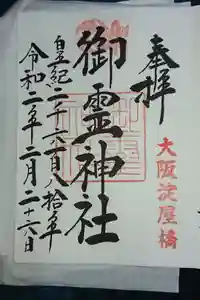 奉拝
大阪淀屋橋
御霊神社
皇紀二千六百八拾年
令和二年二月二十六日